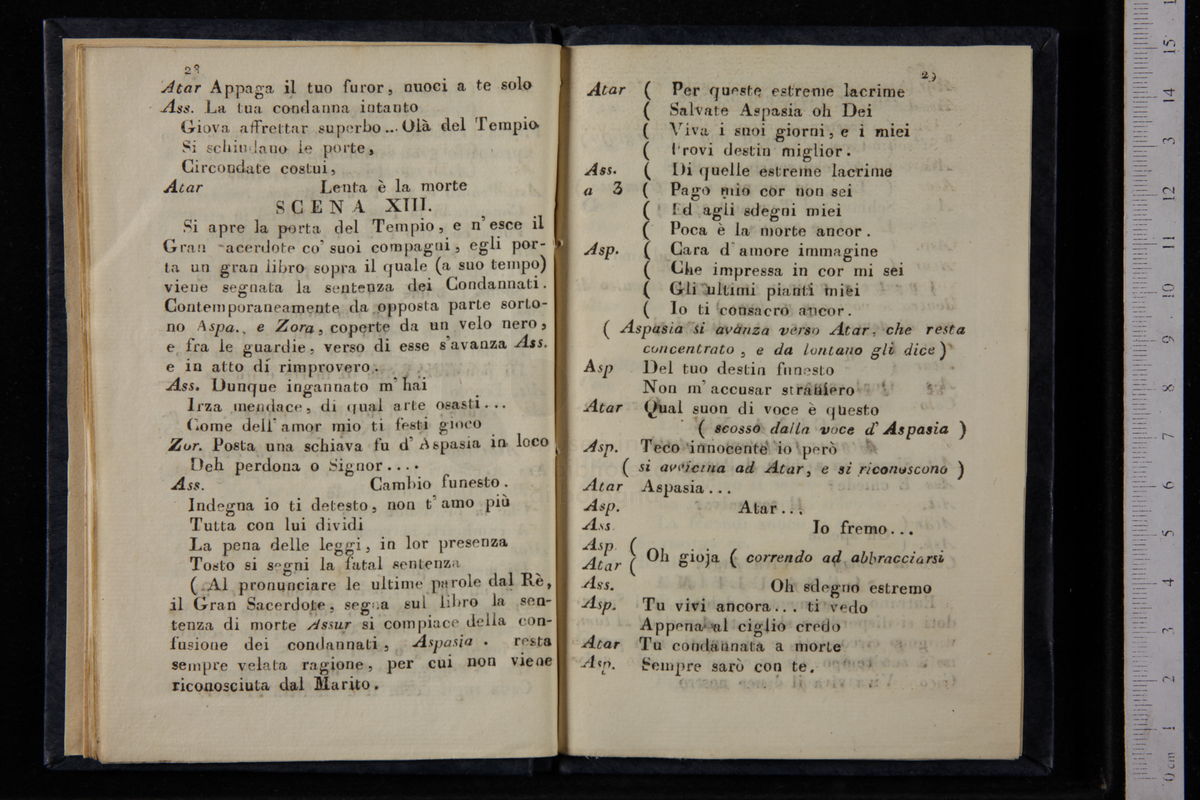 28
Atar Appaga il tuo furor, nuoci a te solo
Ass. La tua condanna intanto
Giova affrettar superbo... Olà del Tempio
Si schiudano le porte,
Circondate costui,
Atar Lenta è la morte
SCENA XIII.
Si apre la porta del Tempio, e n'esce il
Gran acerdote co' suoi compagni, egli por-
ta un gran libro sopra il quale (a suo tempo)
viene segnata la sentenza dei Condannati.
Contemporaneamente da opposta parte sorto-
no Aspa., e Zora, coperte da un velo nero,
e fra le guardie, verso di esse s'avanza Ass.
e in atto di rimprovero.
Ass. Dunque ingannato m'hai
Irza mendace, di qual arte osasti...
Come dell'amor mio ti festi gioco
Zor. Posta una schiava fu d'Aspasia in loco
Deh perdona o Signor....
Ass. Cambio funesto.
Indegna io ti detesto, non t'amo più
Tutta con lui dividi
La pena delle leggi, in lor presenza
Tosto si segni la fatal sentenza
( Al pronunciare le ultime parole dal Rè,
il Gran Sacerdote, segna sul libro la sen-
tenza di morte Assur si compiace della con-
fusione dei condannati, Aspasia . resta
sempre velata ragione, per cui non viene
riconosciuta dal Marito.
29
Atar ( Per queste estreme lacrime
( Salvate Aspasia oh Dei
( Viva i suoi giorni, e i miei
( Provi destin miglior.
Ass. ( Di quelle estreme lacrime
a 3 ( Pago mio cor non sei
( Ed agli sdegni miei
( Poca è la morte ancor.
Asp. ( Cara d'amore immagine
( Che impressa in cor mi sei
( Gli ultimi pianti miei
( Io ti consacro ancor.
( Aspasia si avanza verso Atar. che resta
concentrato, e da lontano gli dice )
Asp Del tuo destin funesto
Non m'accusar straniero
Atar Qual suon di voce è questo
( scosso dalla voce d'Aspasia )
Asp. Teco innocente io però
( si avvicina ad Atar, e si riconoscono )
Atar Aspasia...
Asp. Atar...
Ass Io fremo...
Asp (
Atar ( Oh gioja ( correndo ad abbracciarsi
Ass. Oh sdegno estremo
Asp. Tu vivi ancora... ti vedo
Appena al ciglio credo
Atar Tu condannata a morte
Asp. Sempre sarò con te.
0 cm 1 2 3 4 5 6 7 8 9 10 11 12 13 14 15